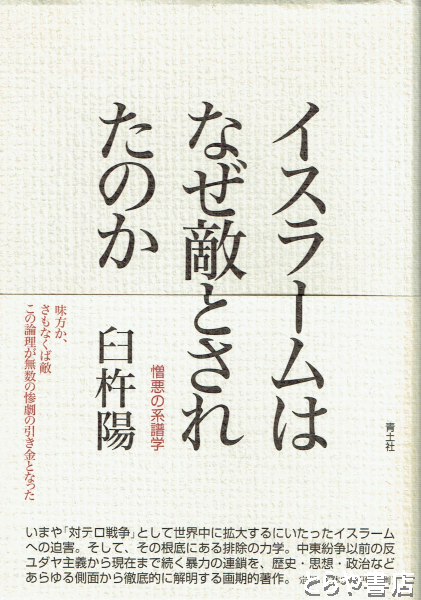 イスラームは
なぜ敵とされ
たのか
憎悪の系譜学
臼杵陽
味方か、
さもなくば敵
この論理が無数の惨劇の引き金となった
青土社
いまや「対テロ戦争」として世界中に拡大するにいたったイスラーム
への迫害。そして、その根底にある排除の力学。中東紛争以前の反
ユダヤ主義から現在まで続く暴力の連鎖を、歴史・思想・政治など
あらゆる側面から徹底的に解明する画期的著作。
とらや書店